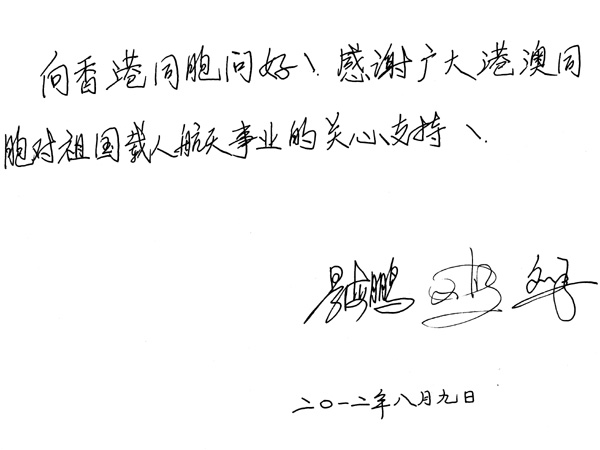 向香港同胞问好！感谢广大港澳同
胞对祖国载人航天事业的关心支持！
景海鹏 刘旺 刘洋
二〇一二年八月九日